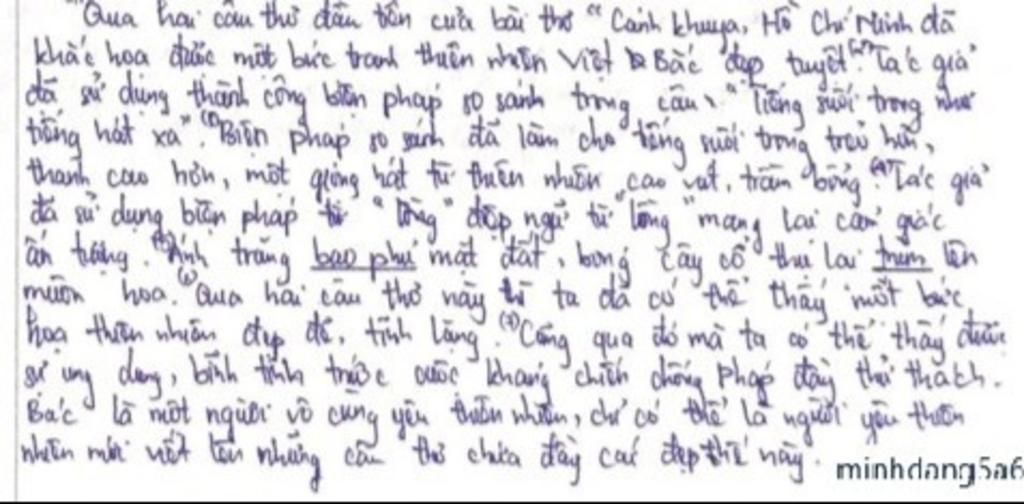 "Qua hai câu thơ đầu tiên của bài thơ "Cảnh khuya, Hồ Chí Minh đã
khắc hoạ được một bức tranh thiên nhiên Việt Bắc đẹp tuyệt. Tác giả
đã sử dụng thành công biện pháp so sánh trong câu, "Tiếng suối trong như
tiếng hát xa". Biện pháp so sánh đã làm cho tiếng suối trong trẻo hơn,
thanh cao hơn, một giọng hát từ thiên nhiên cao vút, trầm bổng. Tác giả
đã sử dụng biện pháp từ "lồng" điệp ngữ từ "lồng" mang lại cảm giác
ấn tượng. Ánh trăng bao phủ mặt đất, bóng cây cổ thụ lại trùm lên
muôn hoa. Qua hai câu thơ này ta đã có thể thấy một bức
hoạ thiên nhiên đẹp đẽ, tĩnh lặng. (7) Cũng qua đó mà ta có thể thấy được
sự ung dung, bình tĩnh trước cuộc kháng chiến chống Pháp đầy thử thách.
Bác là một người vô cùng yêu thiên nhiên, chỉ có thể là người yêu thiên
nhiên mới viết lên những câu thơ chứa đầy cái đẹp thế này.
minhdang5a6